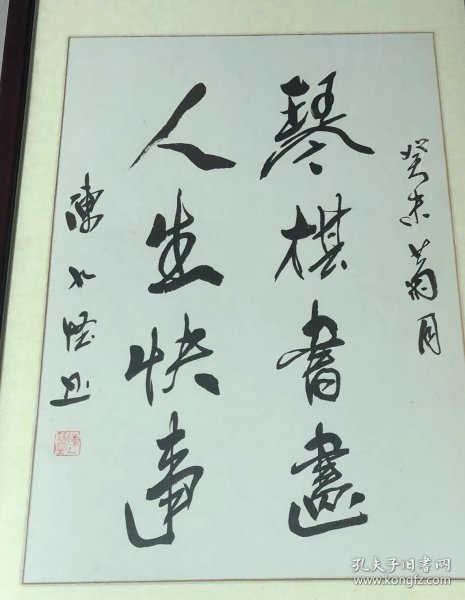 癸未菊月
琴棋書畫
人生快事
陳
孔夫子旧书网
www.kongfz.com